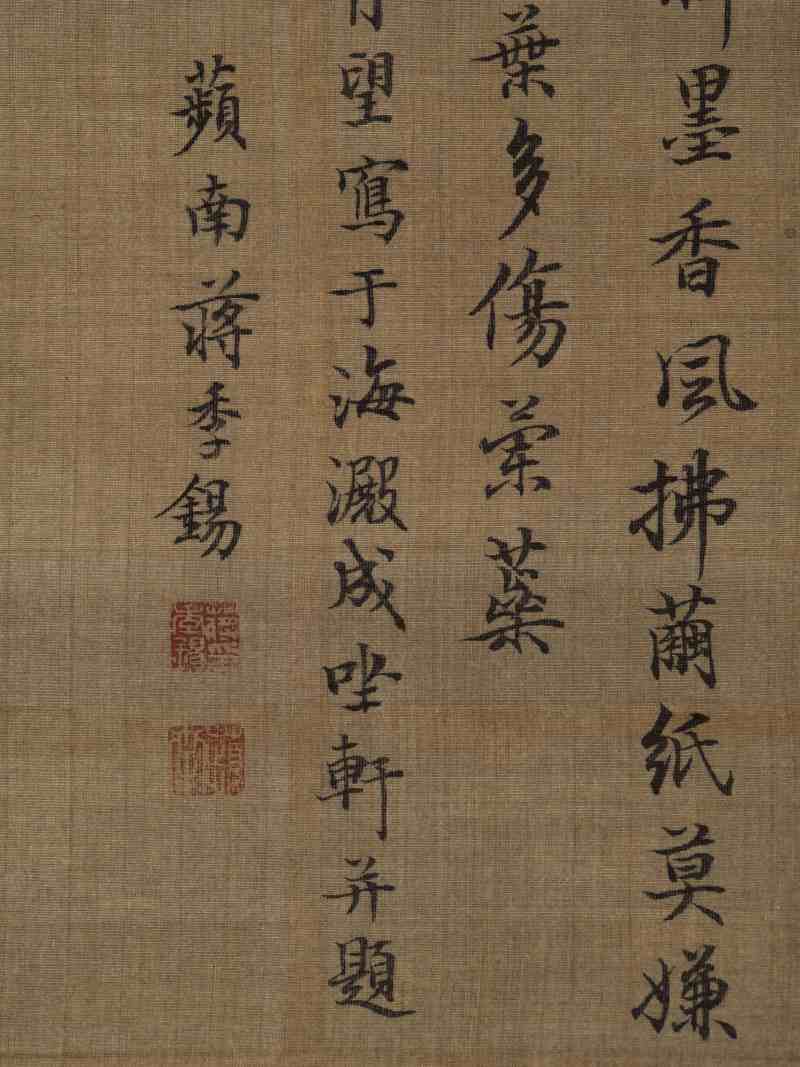 墨香風拂繭紙莫嫌
葉多傷
望寫于海澱成坐軒并題
蘋南蔣季錫